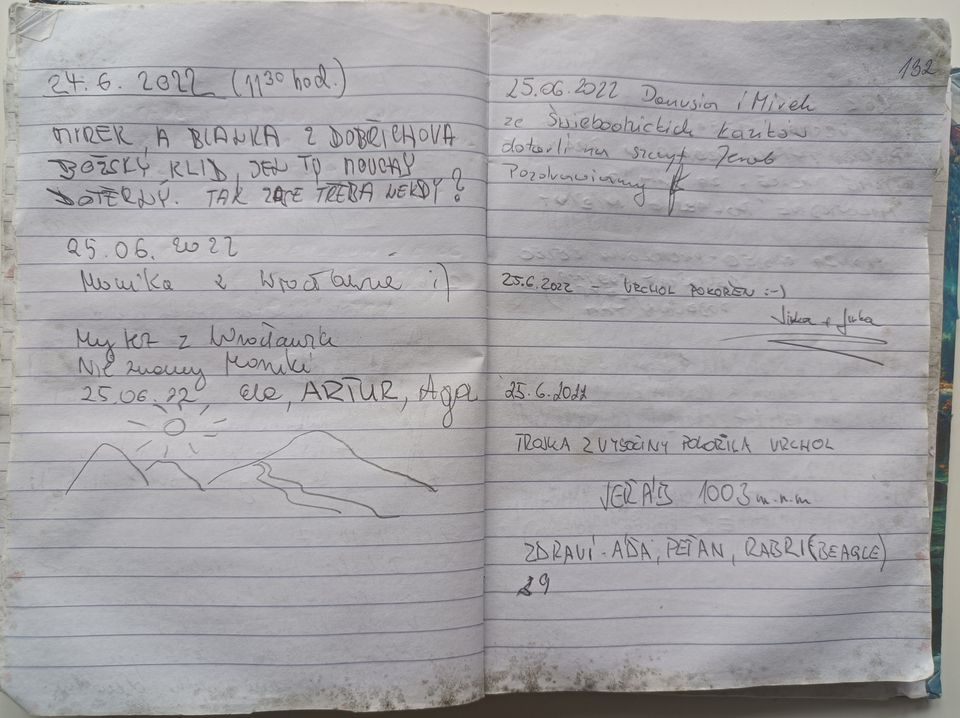 24.6. 2022 (11³⁰ hod.)
MIREK, A BLANKA Z DOBŘICHOVA
BOŽSKÝ KLID, JEN TY MOUCHY
DOTĚRNÝ. TAK ZASE TŘEBA NĚKDY?
25.06.2022
Monika z Wrocławia :)
My też z Wrocławia
Nie znamy Moniki
25.06.22 Ela, ARTUR, Aga
132
25.06.2022 Danusia i Mirek
ze Świebodzickich
dotarli na szczyt Jerab
Pozdrawiamy
25.6.2022 - VRCHOL POKOŘEN :-)
Jirka + Jirka
25.6.2022
TROJKA Z VYSOČINY POKOŘILA VRCHOL
JEŘÁB 1003 m.n.m
ZDRAVÍ - AĎA, PEŤAN, (BEAGLE)